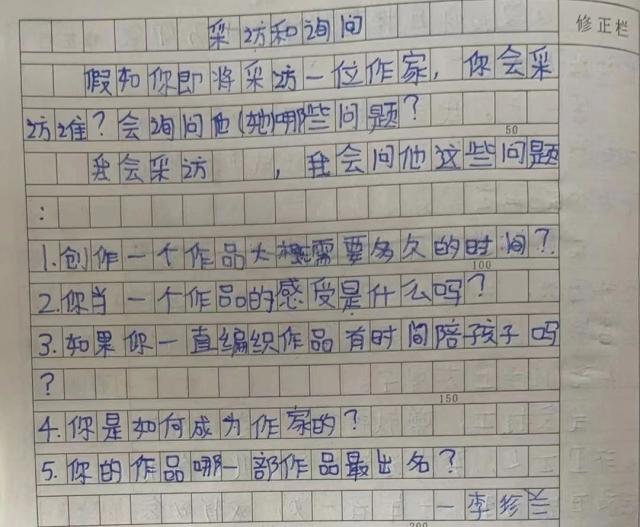 采访和询问
修正栏
假如你即将采访一位作家，你会采
访谁？会询问他(她)哪些问题？
50
我会采访　　，我会问他这些问题
：
1.创作一个作品大概需要多久的时间？
100
2.你当一个作品的感受是什么吗？
3.如果你一直编织作品有时间陪孩子吗
？
150
4.你是如何成为作家的？
5.你的作品哪一部作品最出名？
—李珍兰
200